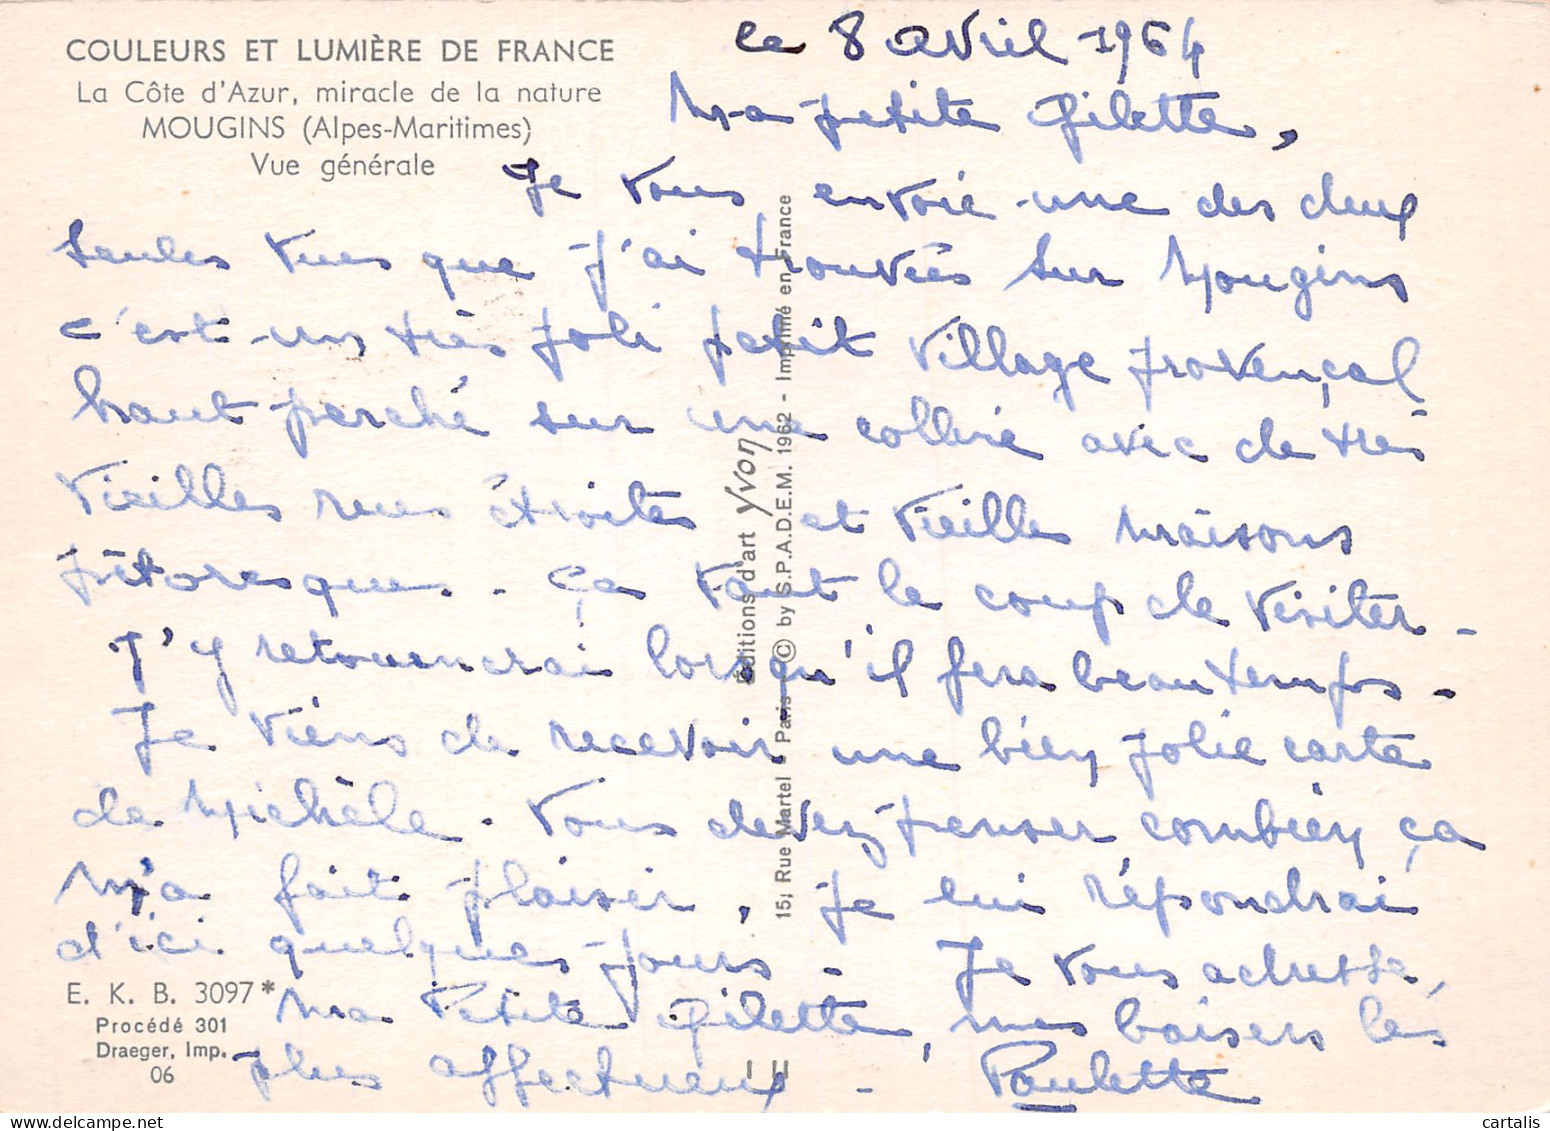 COULEURS ET LUMIÈRE DE FRANCE
La Côte d'Azur, miracle de la nature
MOUGINS (Alpes-Maritimes)
Vue générale
le 8 avril 1964
Ma petite Gilette,
Je vous envoie une des deux
seules vues que j'ai trouvées sur Mougins
c'est un très joli petit village provençal
haut perché sur une colline avec de très
vieilles rues étroites et vieilles maisons
pittoresques. ça vaut le coup de visiter -
J'y retournerai lorsqu'il fera beau temps.
Je viens de recevoir une bien jolie carte
de Michèle. Vous devez penser combien ça
m'a fait plaisir. Je lui répondrai
d'ici quelques jours. Je vous adresse,
ma Petite Gilette, mes baisers les
plus affectueux. Paulette
Éditions d'art Yvon
15, Rue Martel - Paris - © by S.P.A.D.E.M. 1962 - Imprimé en France
E. K. B. 3097*
Procédé 301
Draeger, Imp.
06
cartalis